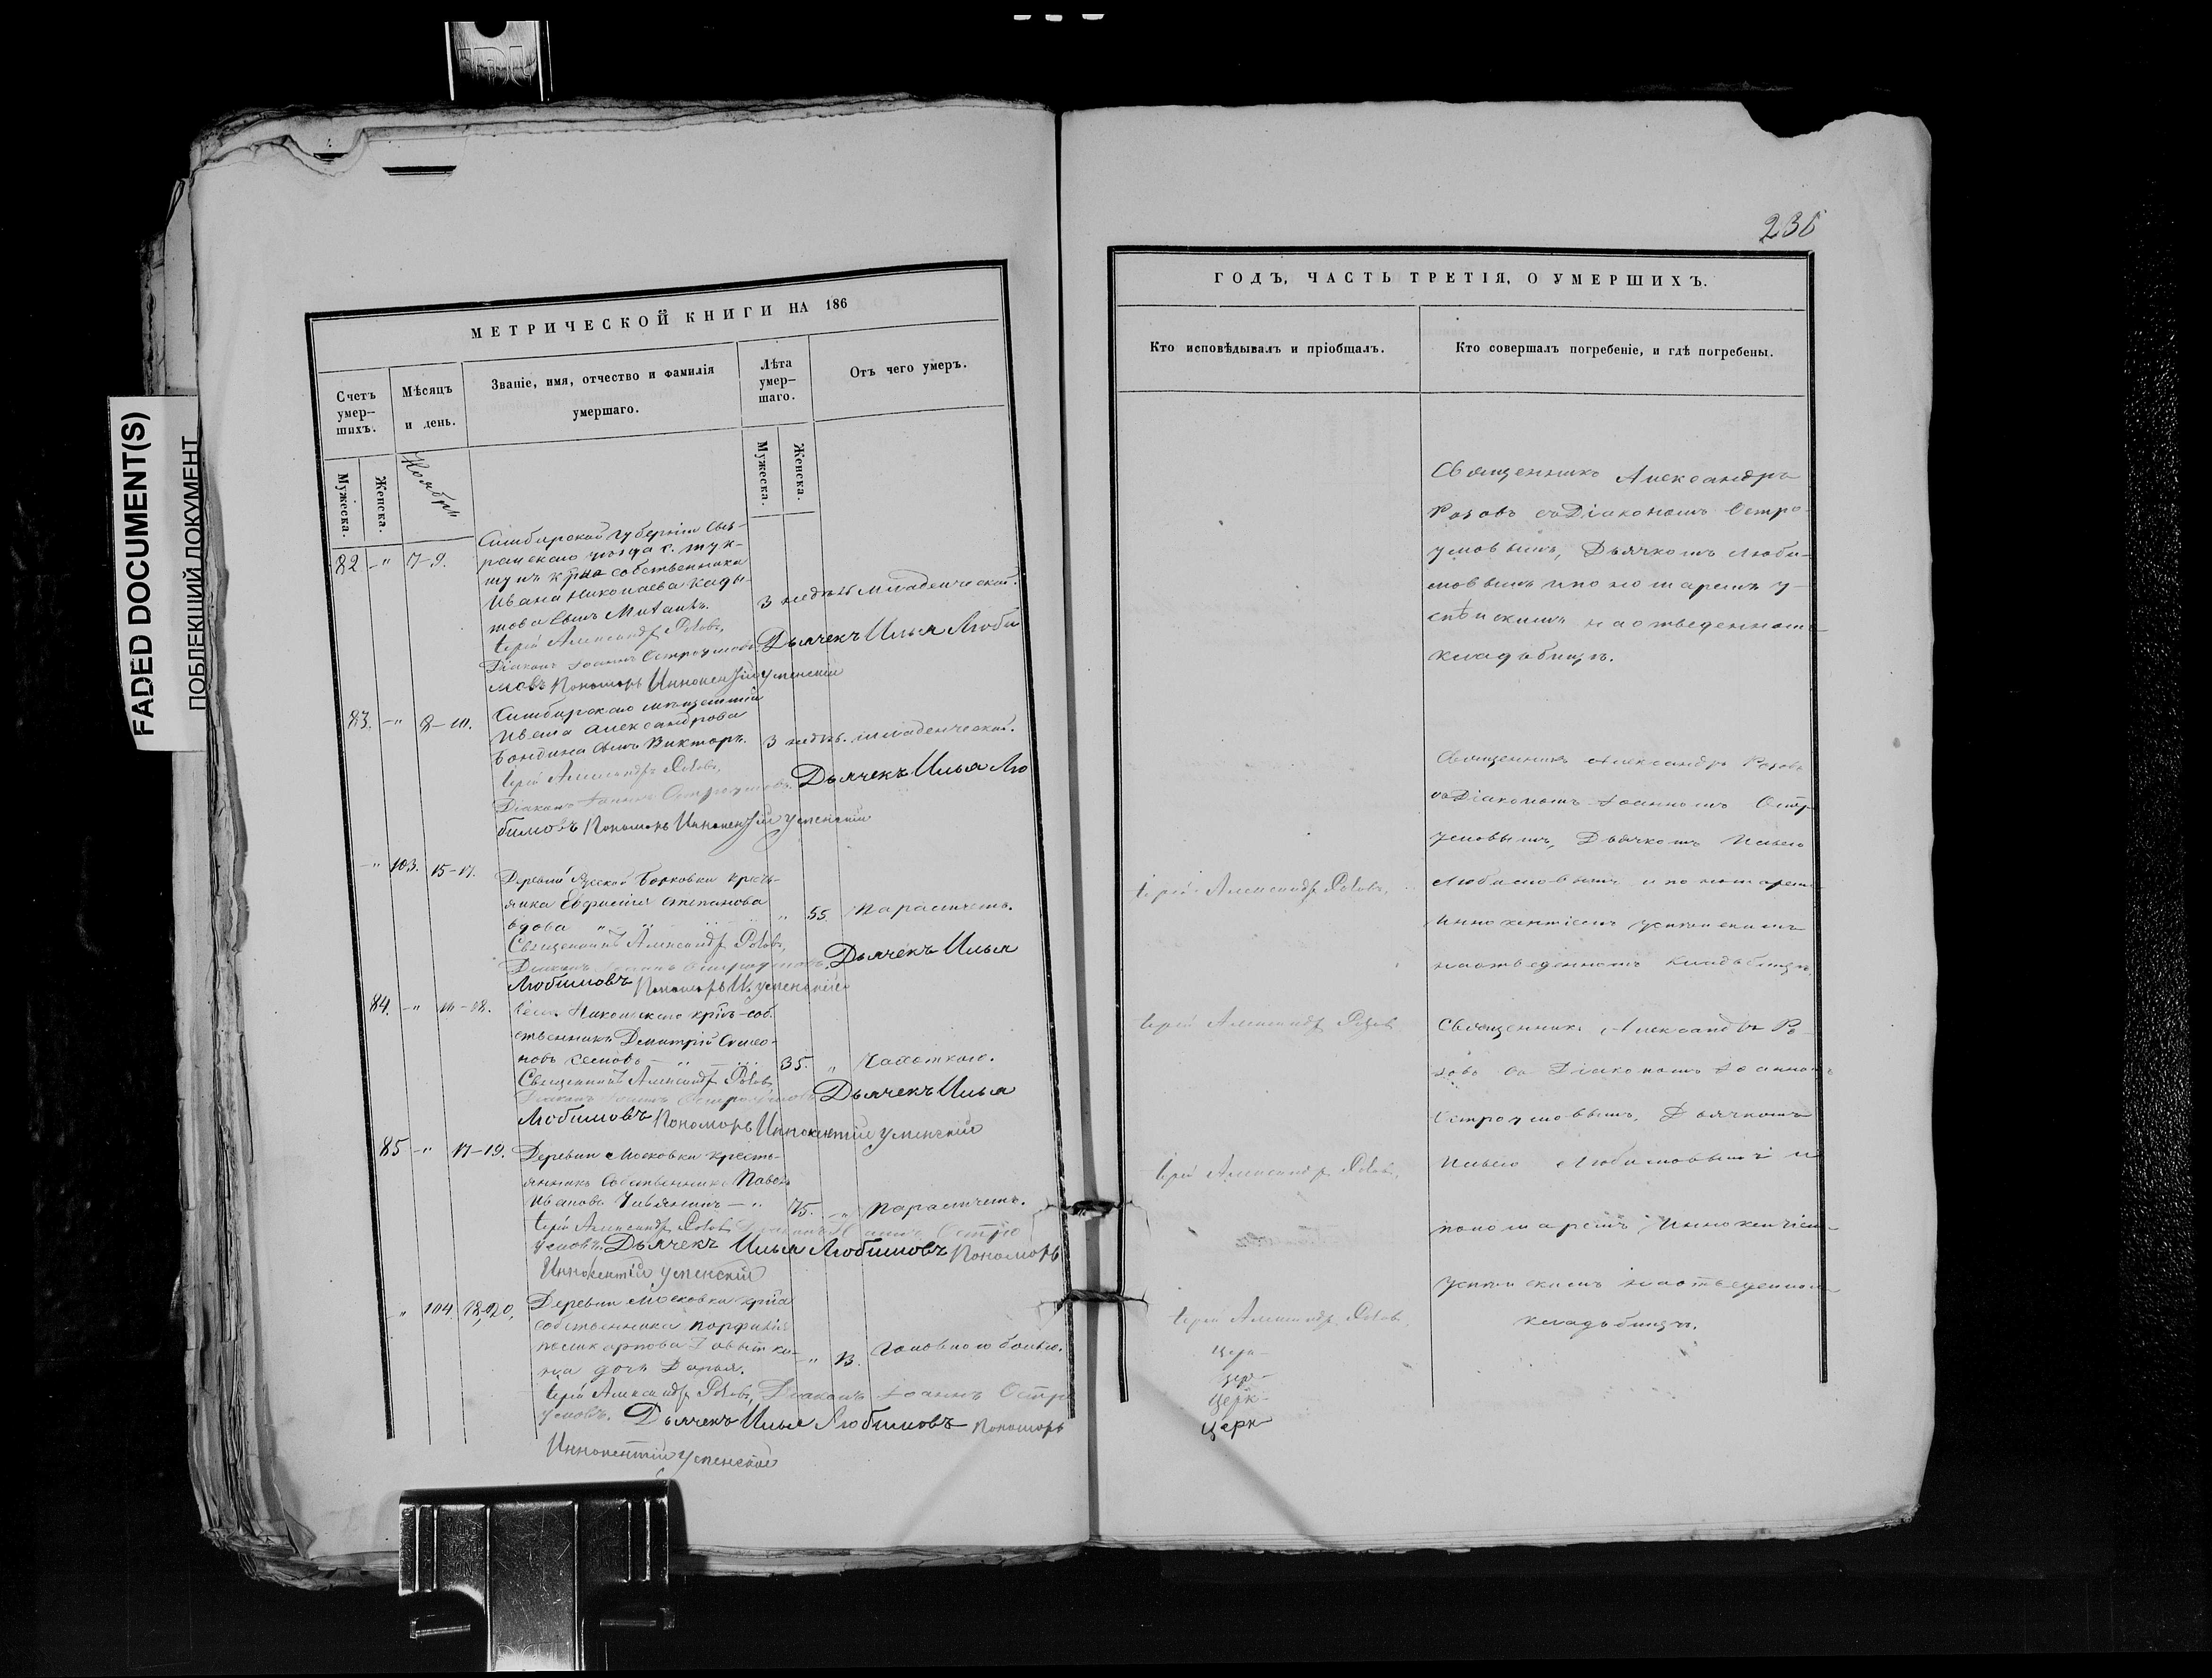 FADED DOCUMENT(S)
ПОБЛЕКШИЙ ДОКУМЕНТ
МЕТРИЧЕСКОЙ КНИГИ НА 186
Счетъ умер-
шихъ.
Мѣсяцъ
и день.
Званіе, имя, отчество и фамилія
умершаго.
Лѣта
умер-
шаго.
Отъ чего умеръ.
Мужеска.
Женска.
Ноябрь
Мужеска.
Женска.
82 -" 7-9. Симбирской губерніи Сыз-
ранскаго уѣзда с.
собственника
Ивана Николаева
това сынъ 3 недѣл младенческой.
Іерей Александръ Розовъ,
Діаконъ Іоаннъ Остроумовъ. Дьячекъ Илья Люби
мовъ Пономарь Иннокентій Успенскій
83. -" 8-10. Симбирскаго
Ивана Александрова
сынъ Викторъ. 3 недѣл. младенческой.
Іерей Александръ Розовъ,
Діаконъ Іоаннъ Остроумовъ. Дьячекъ Илья Лю
бимовъ Пономарь Иннокентій Успенскій
-" 103. 15-17. Деревни Русской Борковки кресть-
янка Евфимія Степанова
вдова " " 55. Параличемъ.
Священникъ Александръ Розовъ,
Діаконъ Іоаннъ Остроумовъ. Дьячекъ Илья
Любимовъ Пономарь И. Успенскій
84. -" Села Никольскаго
ственникъ Димитрій Симео-
новъ 35. " Чахоткою.
Священникъ Александръ Розовъ,
Діаконъ Іоаннъ Остроумовъ Дьячекъ Илья
Любимовъ Пономарь Иннокентій Успенскій
85 -" 17-19. Деревни Московки кресть-
янинъ собственникъ Павелъ
Ивановъ 75. -" Параличемъ.
Іерей Александръ Розовъ, Діаконъ Іоаннъ Остро
умовъ. Дьячекъ Илья Любимовъ Пономарь
Иннокентій Успенскій
-" 104. 18-20. Деревни Московки
собственника Порфирія
Поликарпова
дочь Дарья. -" 13. Головною болью.
Іерей Александръ Розовъ, Діаконъ Іоаннъ Остро
умовъ. Дьячекъ Илья Любимовъ Пономарь
Иннокентій Успенскій
ГОДЪ, ЧАСТЬ ТРЕТІЯ, О УМЕРШИХЪ.
Кто исповѣдывалъ и пріобщалъ.
Кто совершалъ погребеніе, и гдѣ погребены.
Священникъ Александръ
Розовъ съ Діакономъ Остро-
умовымъ, Дьячкомъ Люби-
мовымъ и пономаремъ У-
спѣнскимъ на отведенномъ
кладбищѣ.
Священникъ Александръ Розовъ
съ Діакономъ Іоанномъ Остр
умовымъ, Дьячкомъ Ильею
Іерей Александръ Розовъ,
Любимовымъ и пономаремъ
Иннокентіемъ Успѣнскимъ
на отведенномъ кладбищѣ.
Іерей Александръ Розовъ
Священникъ Александръ Ро-
зовъ съ Діакономъ Іоанномъ
Остроумовымъ, Дьячкомъ
Іерей Александръ Розовъ,
Ильею Любимовымъ и
пономаремъ Иннокентіем
Успѣнскимъ на отведенном
Іерей Александръ Розовъ,
кладбищѣ.
Церк-
Цер-
Церк-
Церк